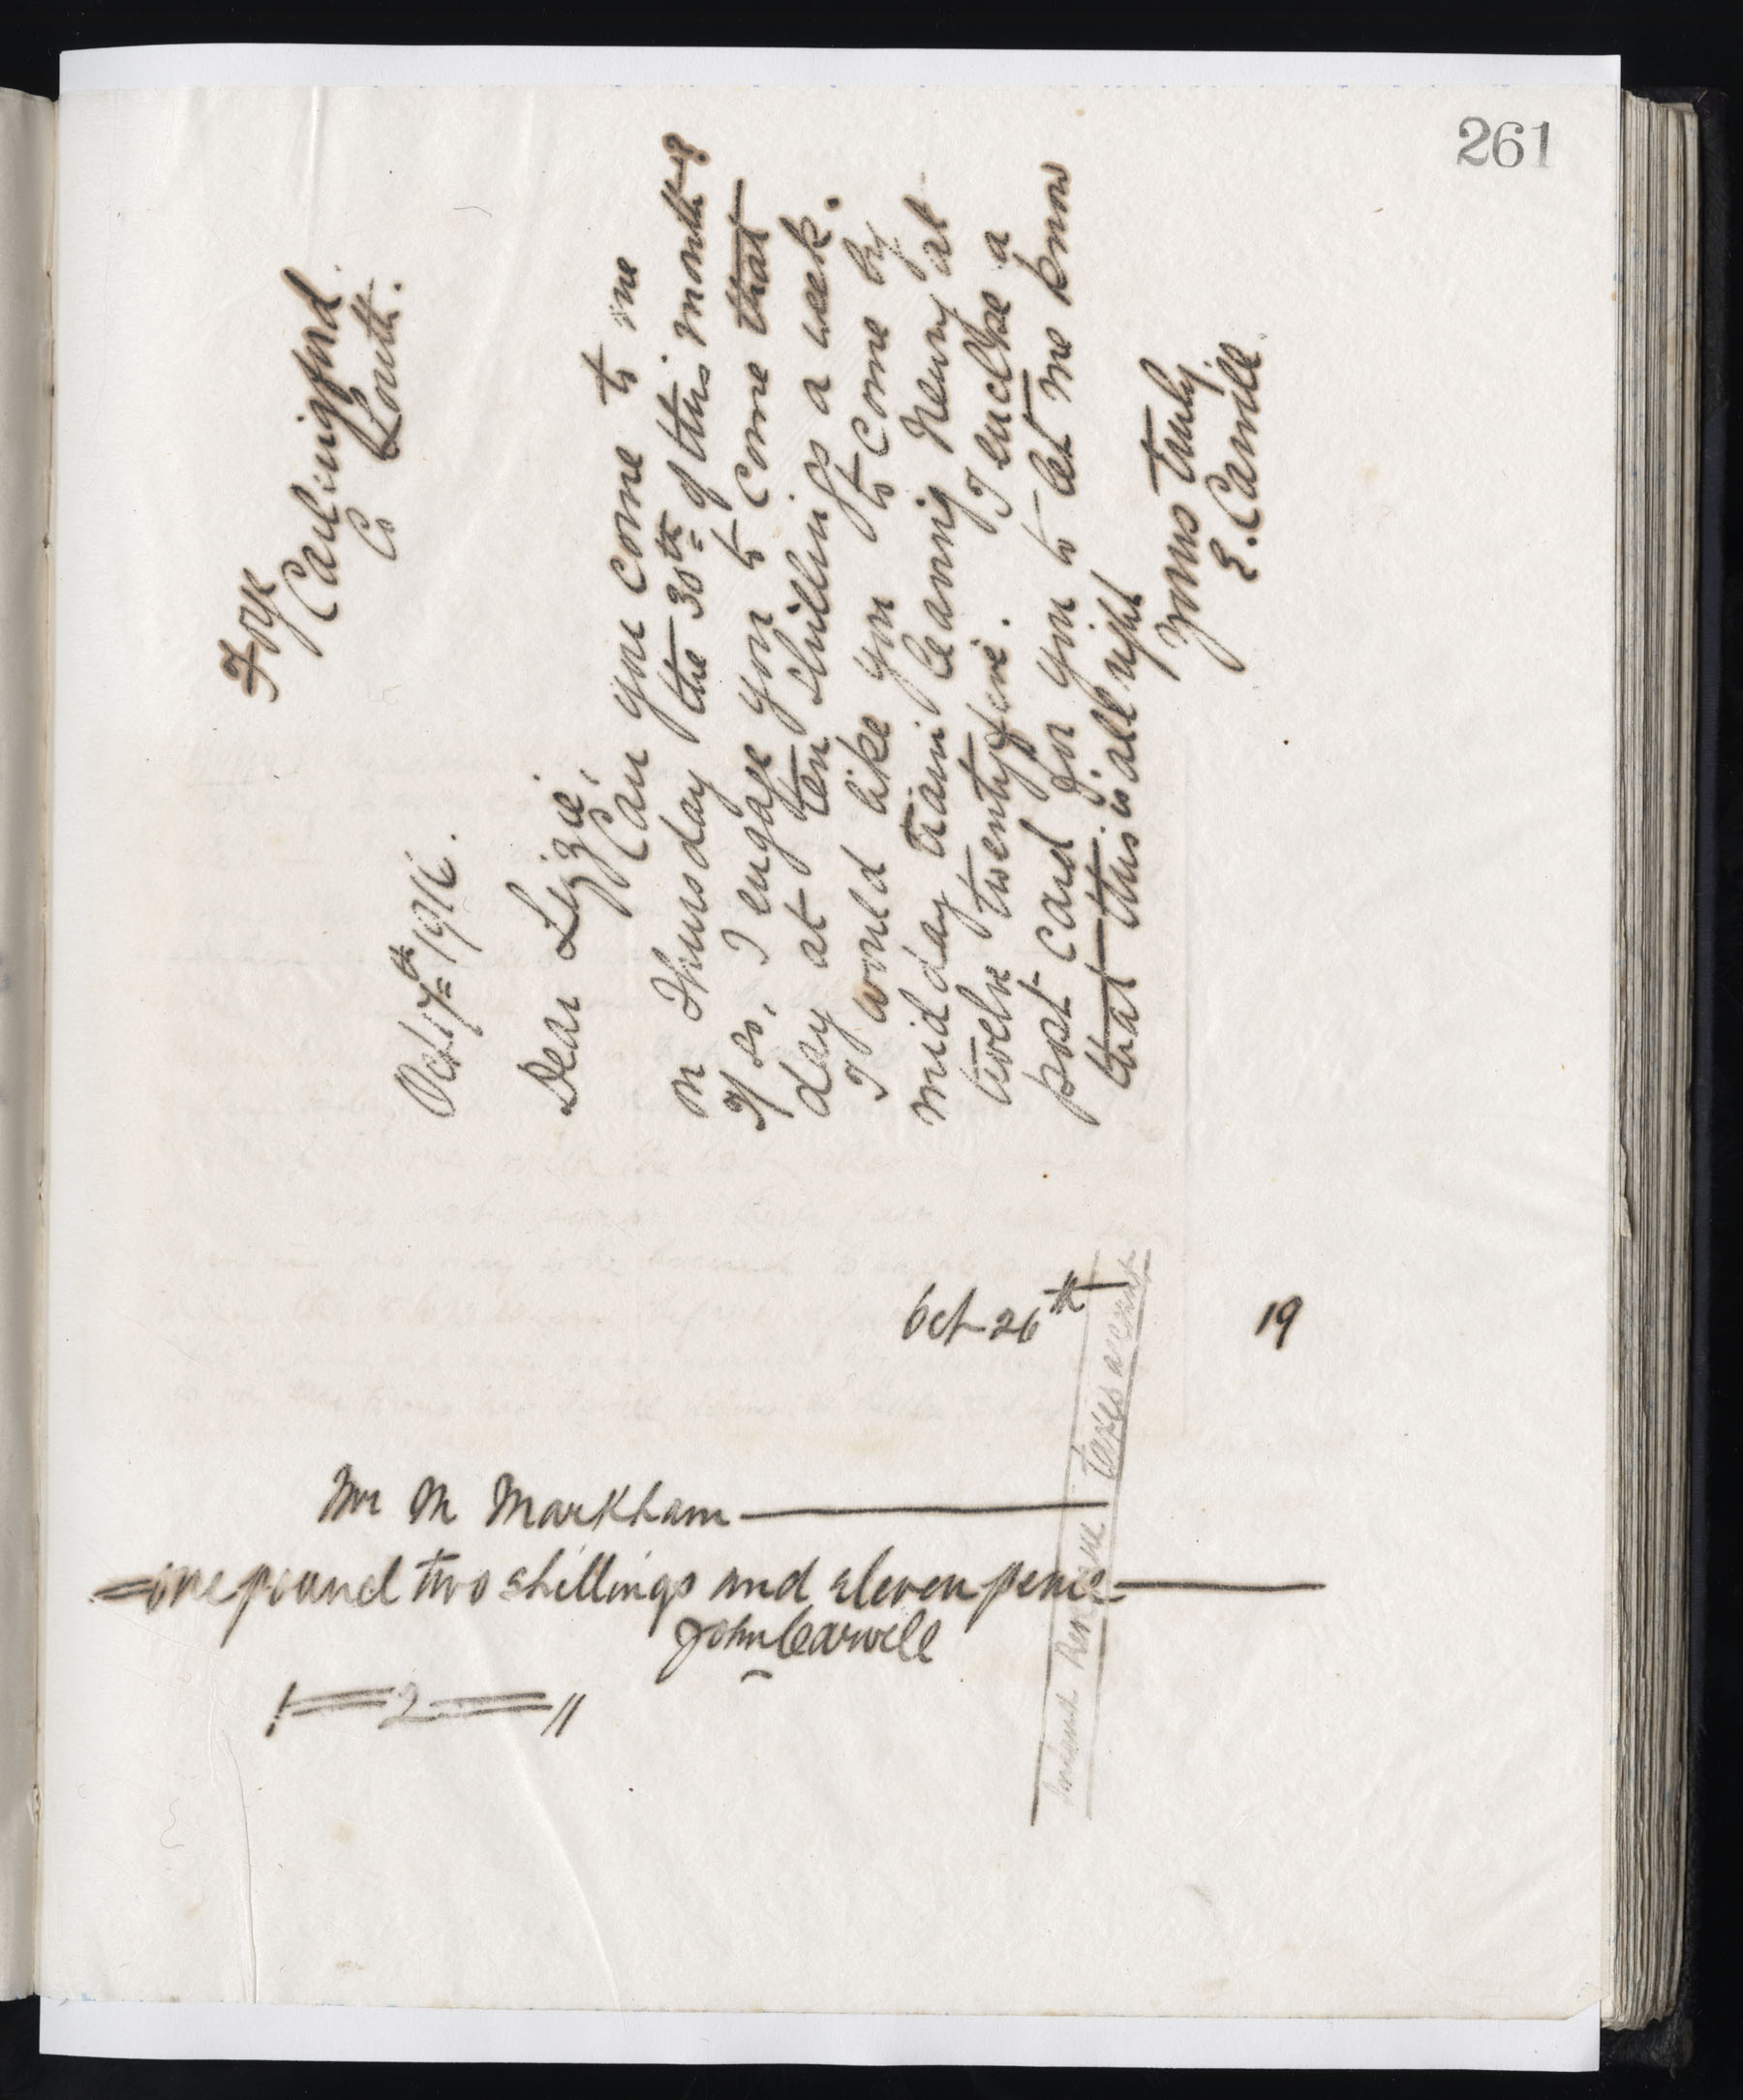 261
Foye
Carlingford
Co Louth.
Oct. 17th 1916.
Dear Lizzie,
Can you come to me
on Thursday the 30th of this month?
If so, I engage you to come that
day at ten shillings a week.
I would like you to come by
mid day train leaving Newry at
twelve twentyfive. I enclose a
post card for you to let me know
that this is all right
yours truly
E. Carvill
Oct 26th 19
Mr M Markham
one pound two shillings and eleven pence
John Carvill
1 = 2 = 11
Inland Revenue Taxes account